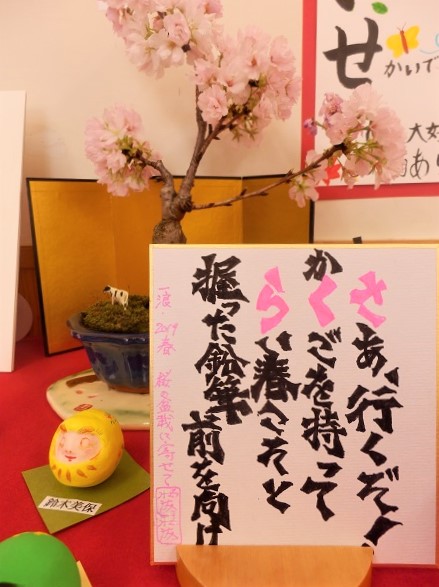 さあ、行くぞ!
かくごを持って
らい春へそと
握った鉛筆
前を向け
一浪 2019 春 桜の盆栽に寄せて
鈴木美保
せ
かいで
大好
あり